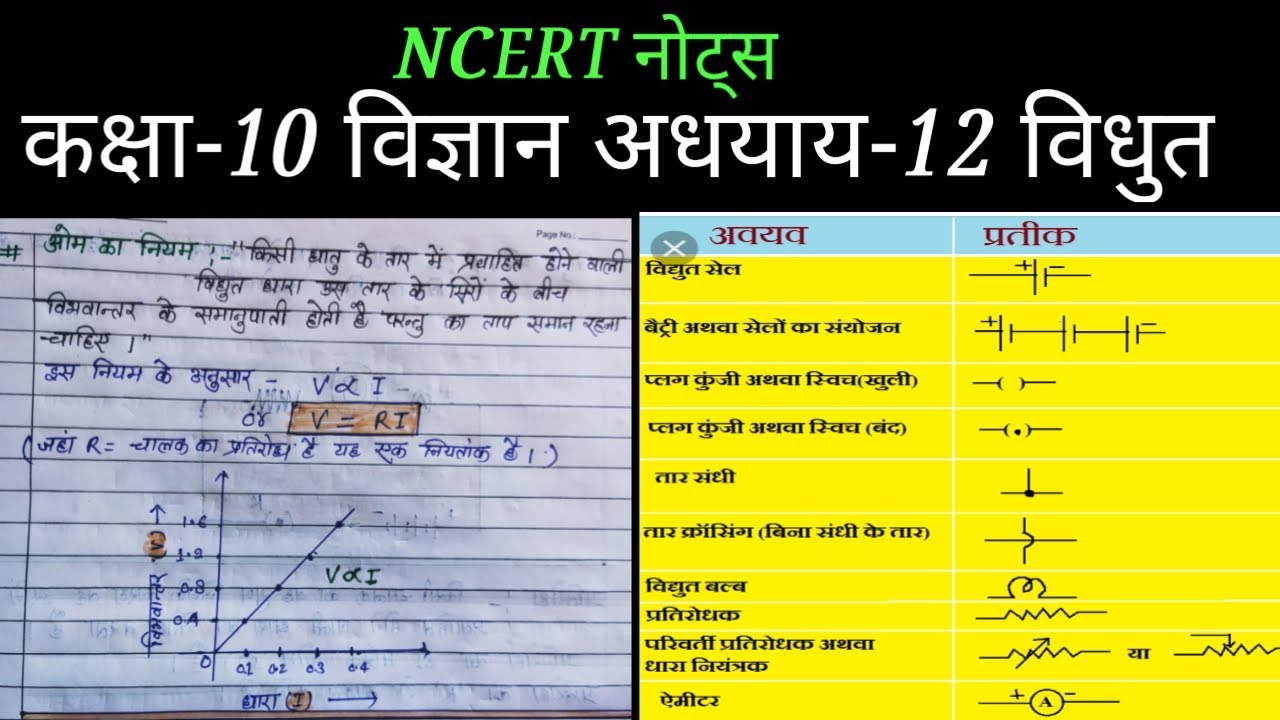 NCERT नोट्स
कक्षा-10 विज्ञान अधयाय-12 विधुत
Page No.:
# ओम का नियम :- "किसी धातु के तार में प्रवाहित होने वाली
विद्युत धारा उस तार के सिरों के बीच
विभवान्तर के समानुपाती होती है परन्तु का ताप समान रहना
चाहिए ।"
इस नियम के अनुसार - V ∝ I
or V = RI
(जहां R = चालक का प्रतिरोध है यह एक नियतांक है।)
विभवान्तर (V) →
1.6
1.2
0.8
0.4
V∝I
0 0.1 0.2 0.3 0.4
धारा (I) →
अवयव प्रतीक
विद्युत सेल + -
बैट्री अथवा सेलों का संयोजन + -
प्लग कुंजी अथवा स्विच(खुली)
प्लग कुंजी अथवा स्विच (बंद)
तार संधी
तार क्रॉसिंग (बिना संधी के तार)
विद्युत बल्ब
प्रतिरोधक
परिवर्ती प्रतिरोधक अथवा या
धारा नियंत्रक
ऐमीटर + A -